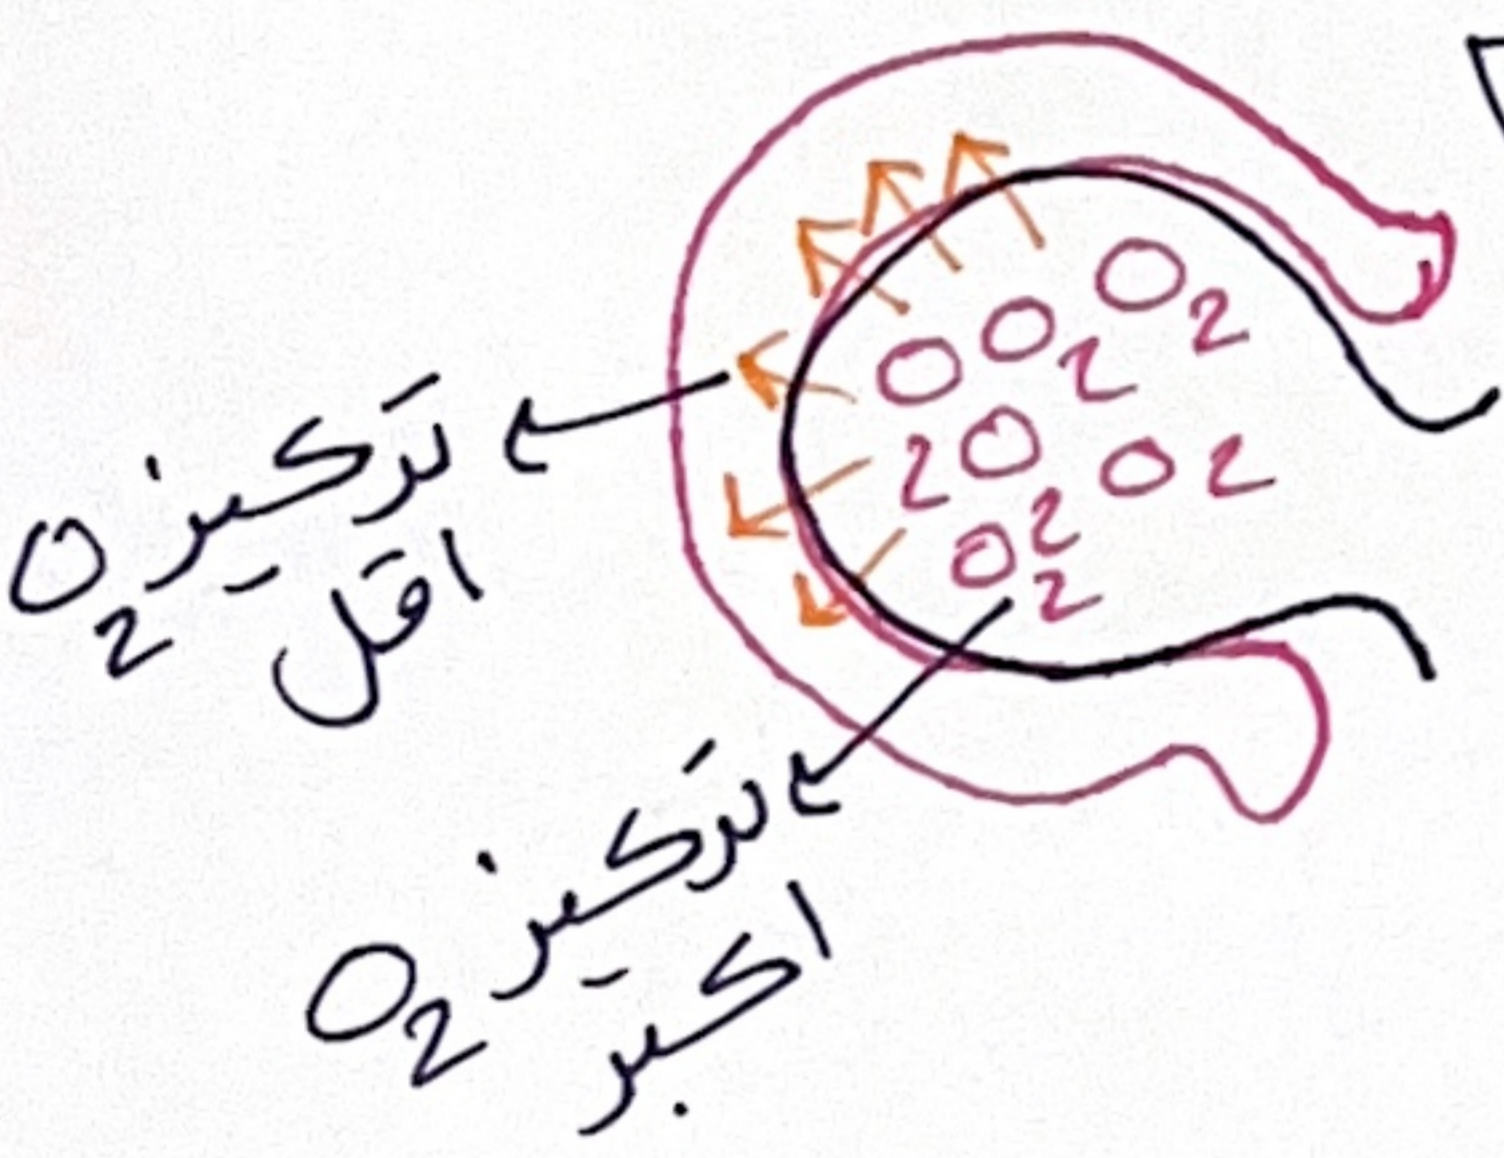 O2
O O2
2O O2
O2
2
تركيز O2
اقل
تركيز O2
اكبر